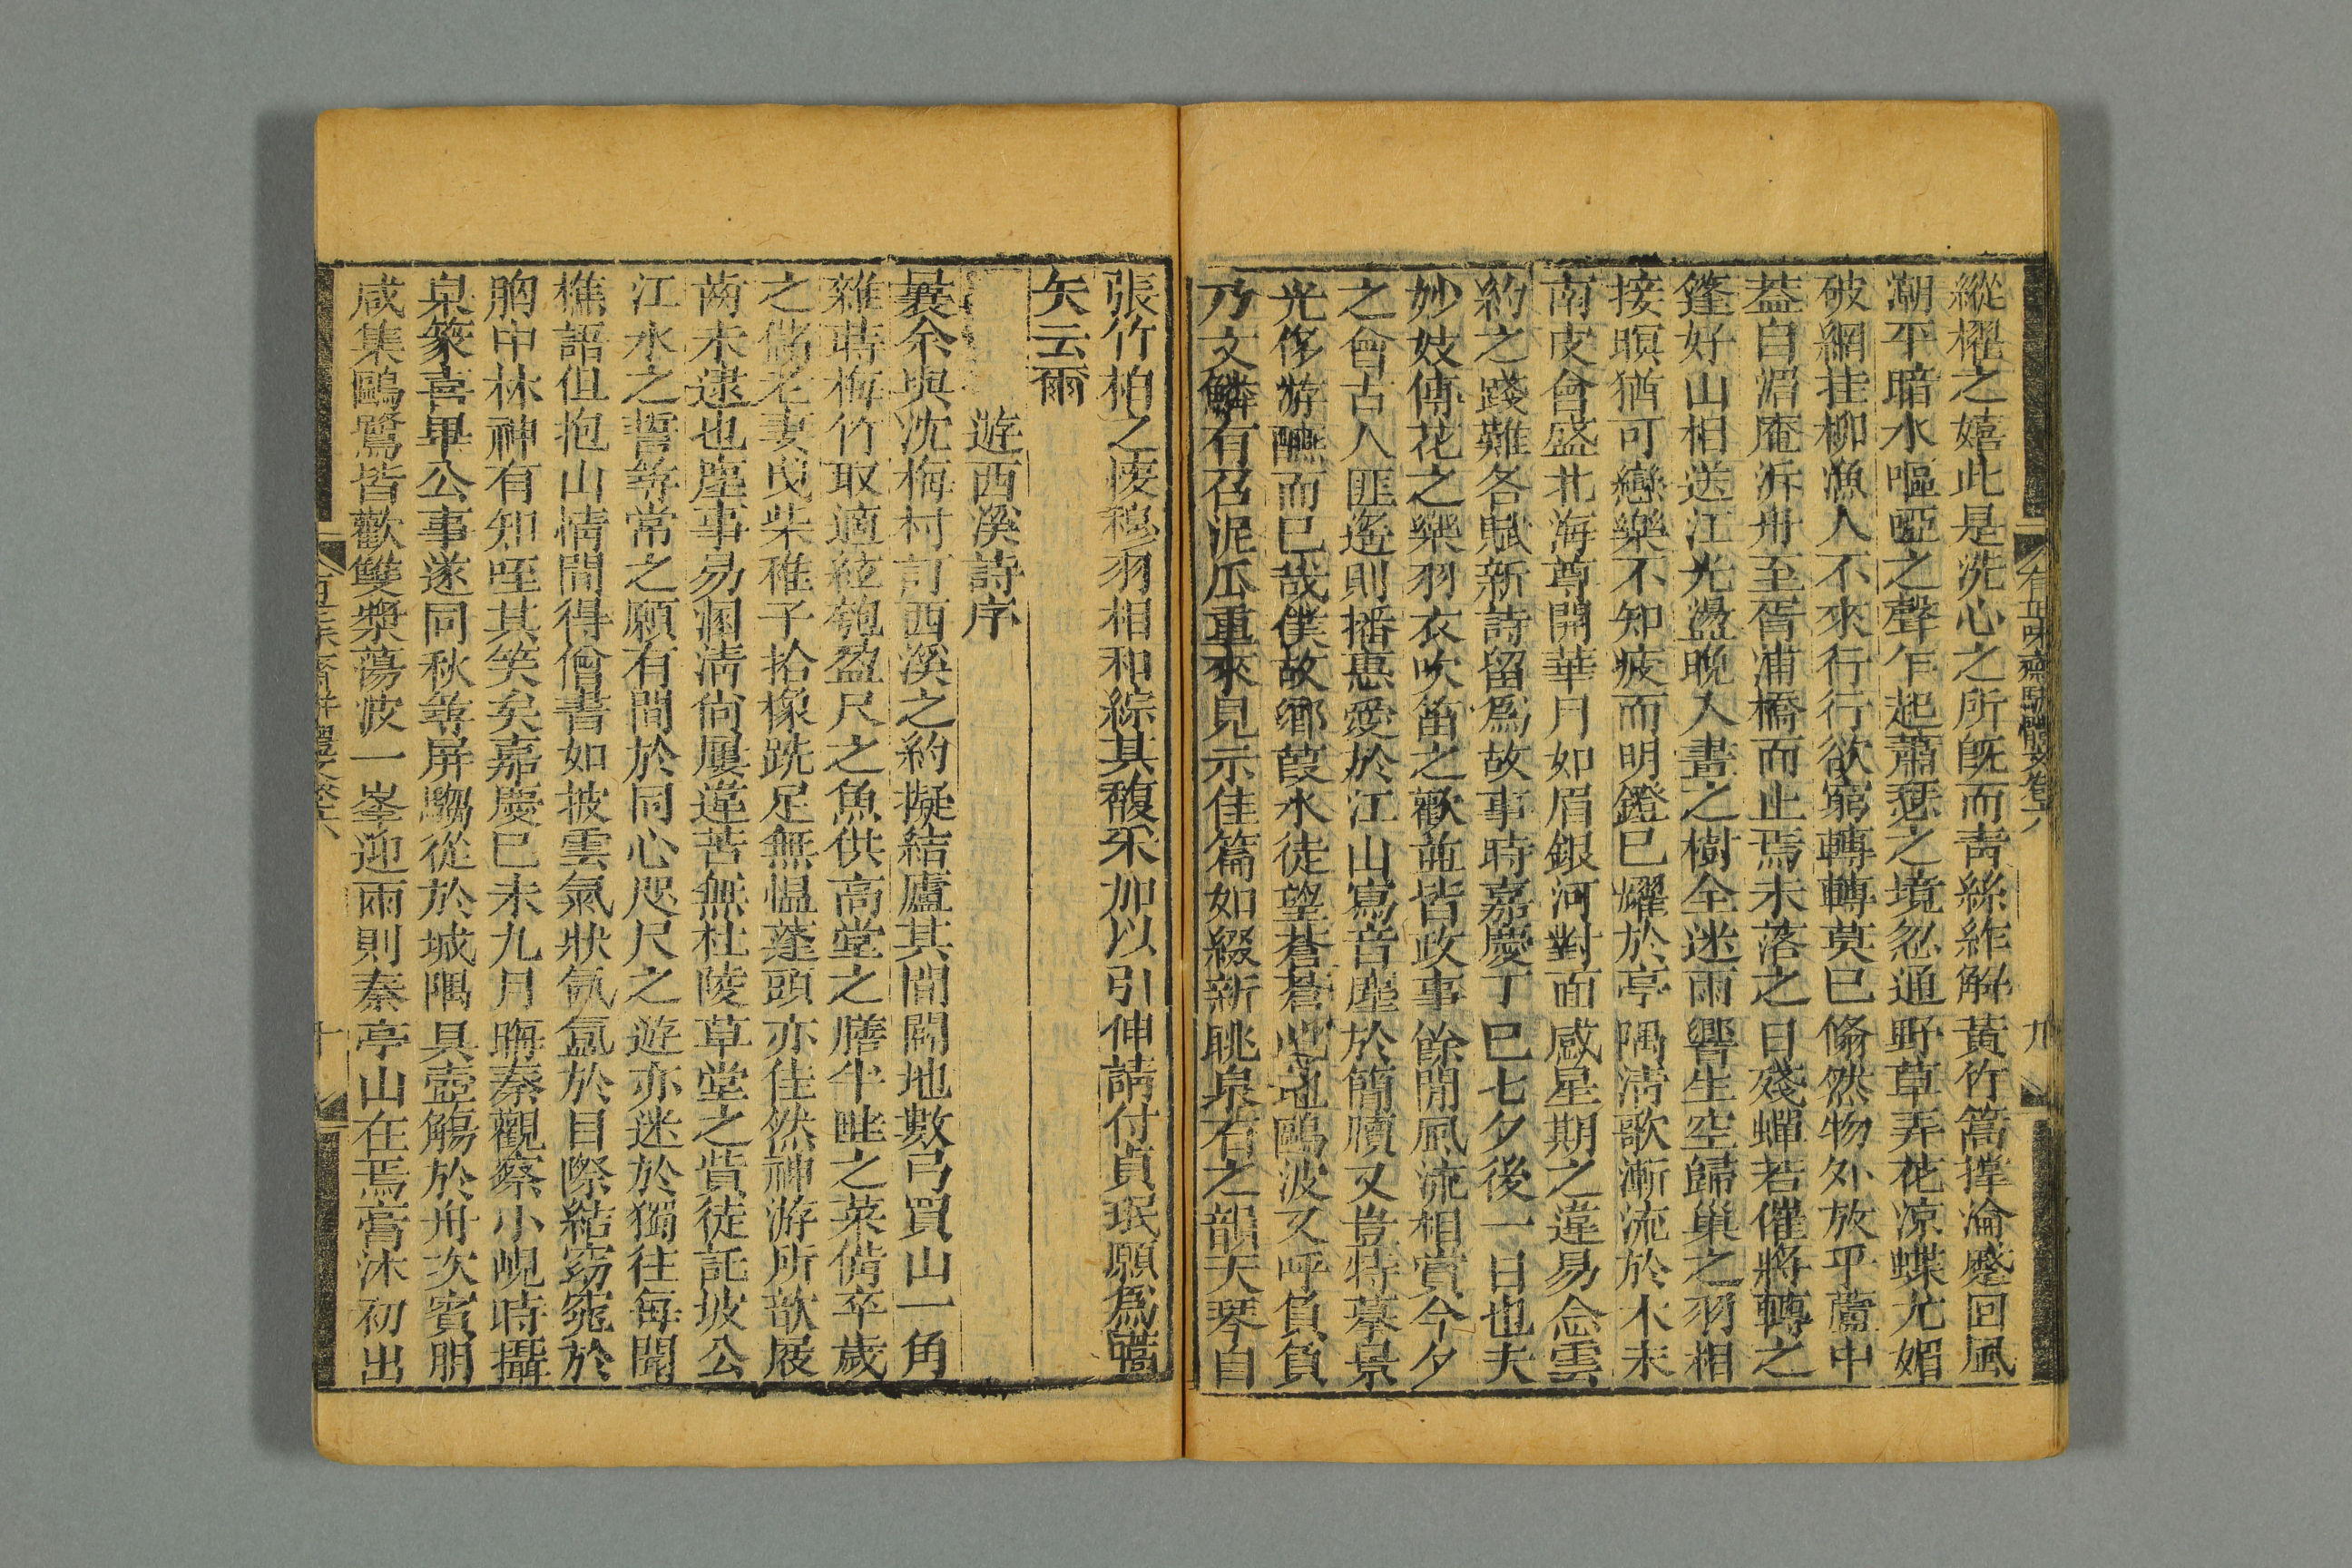 有正味齋駢體文卷六
九
縱櫂之嬉此是洗心之所既而靑絲絆解黃竹篙撑淪漪回風
潮平暗水嘔啞之聲乍起蕭瑟之境忽通野草弄花凉蝶尤媚
破網挂柳漁人不來行行欲窮轉轉莫已翛然物外放乎蘆中
葢自湄庵泝舟至胥浦橋而止焉未落之日殘蟬若催將轉之
篷好山相送江光盪晚入畫之樹全迷雨響生空歸巢之羽相
接暝猶可戀樂不知疲而明鐙已耀於亭隅淸歌漸流於木末
南皮會盛北海尊開華月如眉銀河對面感星期之違易念雲
約之踐難各賦新詩留爲故事時嘉慶丁巳七夕後一日也夫
妙妓傳花之樂羽衣吹笛之歡並皆政事餘閒風流相賞今夕
之會古人匪遙則播惠愛於江山寫音塵於簡牘又豈特摹景
光侈游讌而已哉僕故鄉葭水徒望蒼蒼此地鷗波又呼負負
乃文鱗有召泥瓜重來見示佳篇如綴新眺泉石之韻天琴自
張竹柏之懷穆羽相和綜其馥采加以引伸請付貞珉願爲嚆
矢云爾
遊西溪詩序
曩余與沈梅村訂西溪之約擬結廬其間闢地數弓買山一角
雜蒔梅竹取適絃匏盈尺之魚供高堂之膳半畦之菜備卒歲
之儲老妻戍柴稚子拾橡跣足無慍蓬頭亦佳然神游所歆屐
齒未逮也塵事易溷淸尙屢違苦無杜陵草堂之貲徒託坡公
江水之誓等常之願有間於同心咫尺之遊亦迷於獨往每聞
樵語但抱山情間得僧書如披雲氣狀氤氳於目際結窈窕於
胸中林神有知咥其笑矣嘉慶已未九月晦秦觀察小峴時攝
臬篆喜畢公事遂同秋等屏騶從於城隅具壺觴於舟次賓朋
咸集鷗鷺皆歡雙槳蕩波一峯迎雨則秦亭山在焉膏沐初出
十